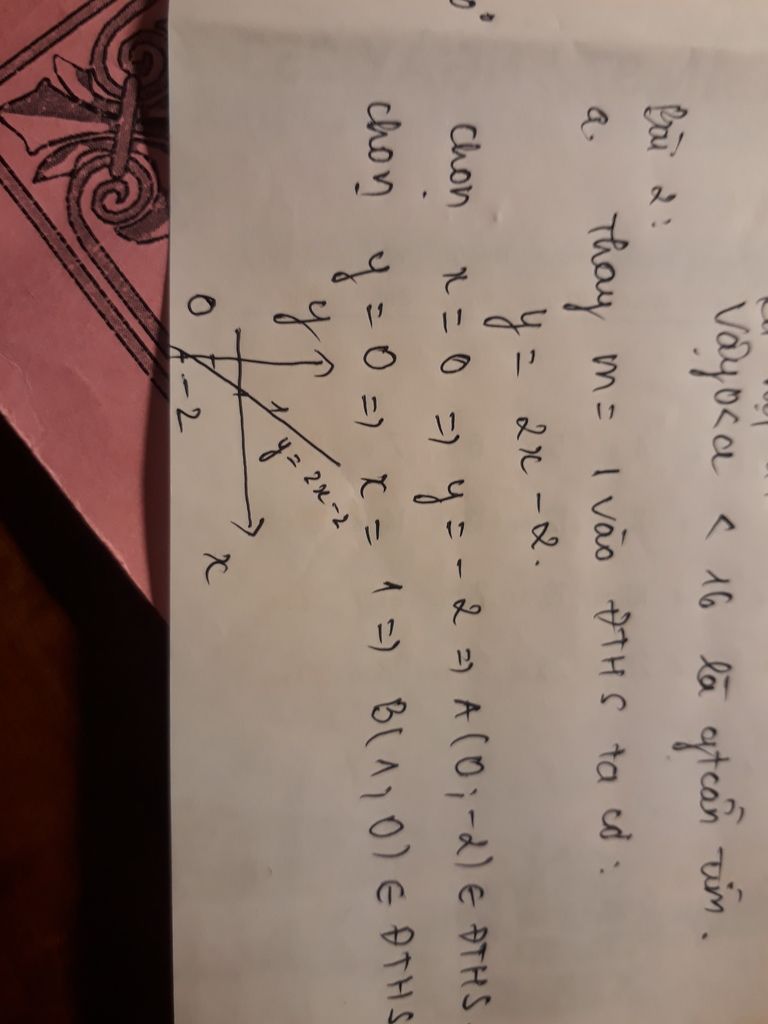 Vậy 0 < a < 16 là gt cần tìm.
Bài 2:
a. Thay m = 1 vào ĐTHS ta có:
y = 2x - 2.
chọn x = 0 => y = - 2 => A(0; -2) ∈ ĐTHS.
chọn y = 0 => x = 1 => B(1, 0) ∈ ĐTHS
y
1
y = 2x-2
0
x
-2